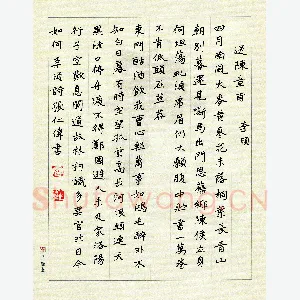 送陳章甫 李頎
四月南風大麥黃棗花未落桐葉長青山
朝別暮還見嘶馬出門思舊鄉陳侯立身
何坦蕩虬鬚虎眉仍大顙腹中貯書一萬卷
不肯低頭在草莽
東門酤酒飲我曹心輕萬事如鴻毛醉卧不
知白日暮有時空望孤雲高長河浪頭連天
黑津口停舟渡不得鄭國遊人未及家洛陽
行子空歎息聞道故林相識多罷官昨日今
如何 張仁偉書